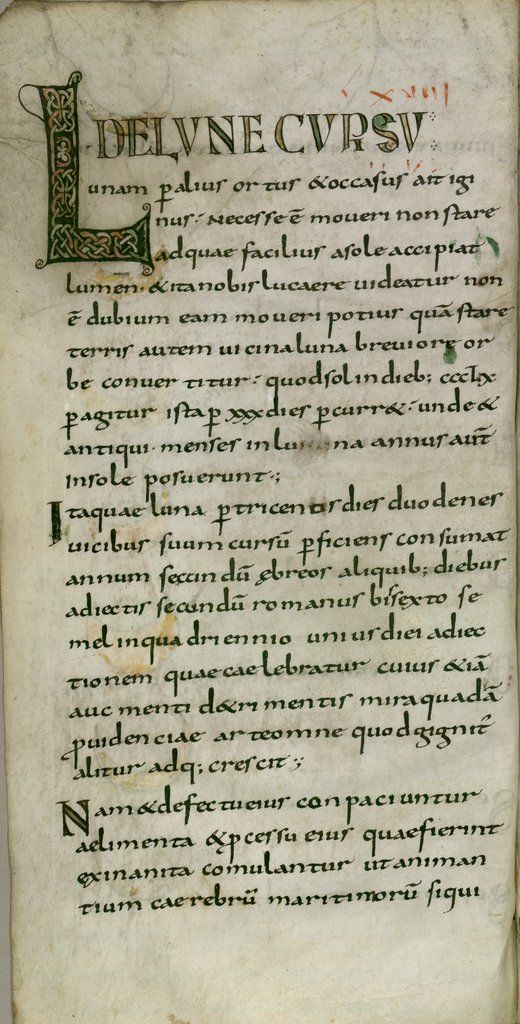 xxiiii
DE LUNE CURSU
Lunam p alius ortus & occasus ait igi
nus : necesse ē moveri non stare
ad quae facilius a sole accipiat
lumen · & ita nobis lucaere uideatur non
ē dubium eam moueri potius quā stare
terris autem uicina luna breuiore or
be conuertitur : quod sol in dieb; ccclx
pagitur ista p xxx dies pcurr& : unde &
antiqui · menses in luna annus aūt
in sole posuerunt :;
Itaquae luna p tricentis dies duodenes
uicibus suum cursū pficiens consumat
annum secundū ębreos aliquib; diebus
adiectis secundū romanus bisexto se
mel in quadriennio unius diei adiec
tionem quae caelebratur cuius & iā
aucmenti d&rimentis mira quadā
puidenciae arte omne quod gignit̄
alitur adq; crescit :;
Nam & defectu eius conpaciuntur
aelimenta & pcessu eius quae fierint
exinanita comulantur ut animan
tium caerebrū maritimorū siqui